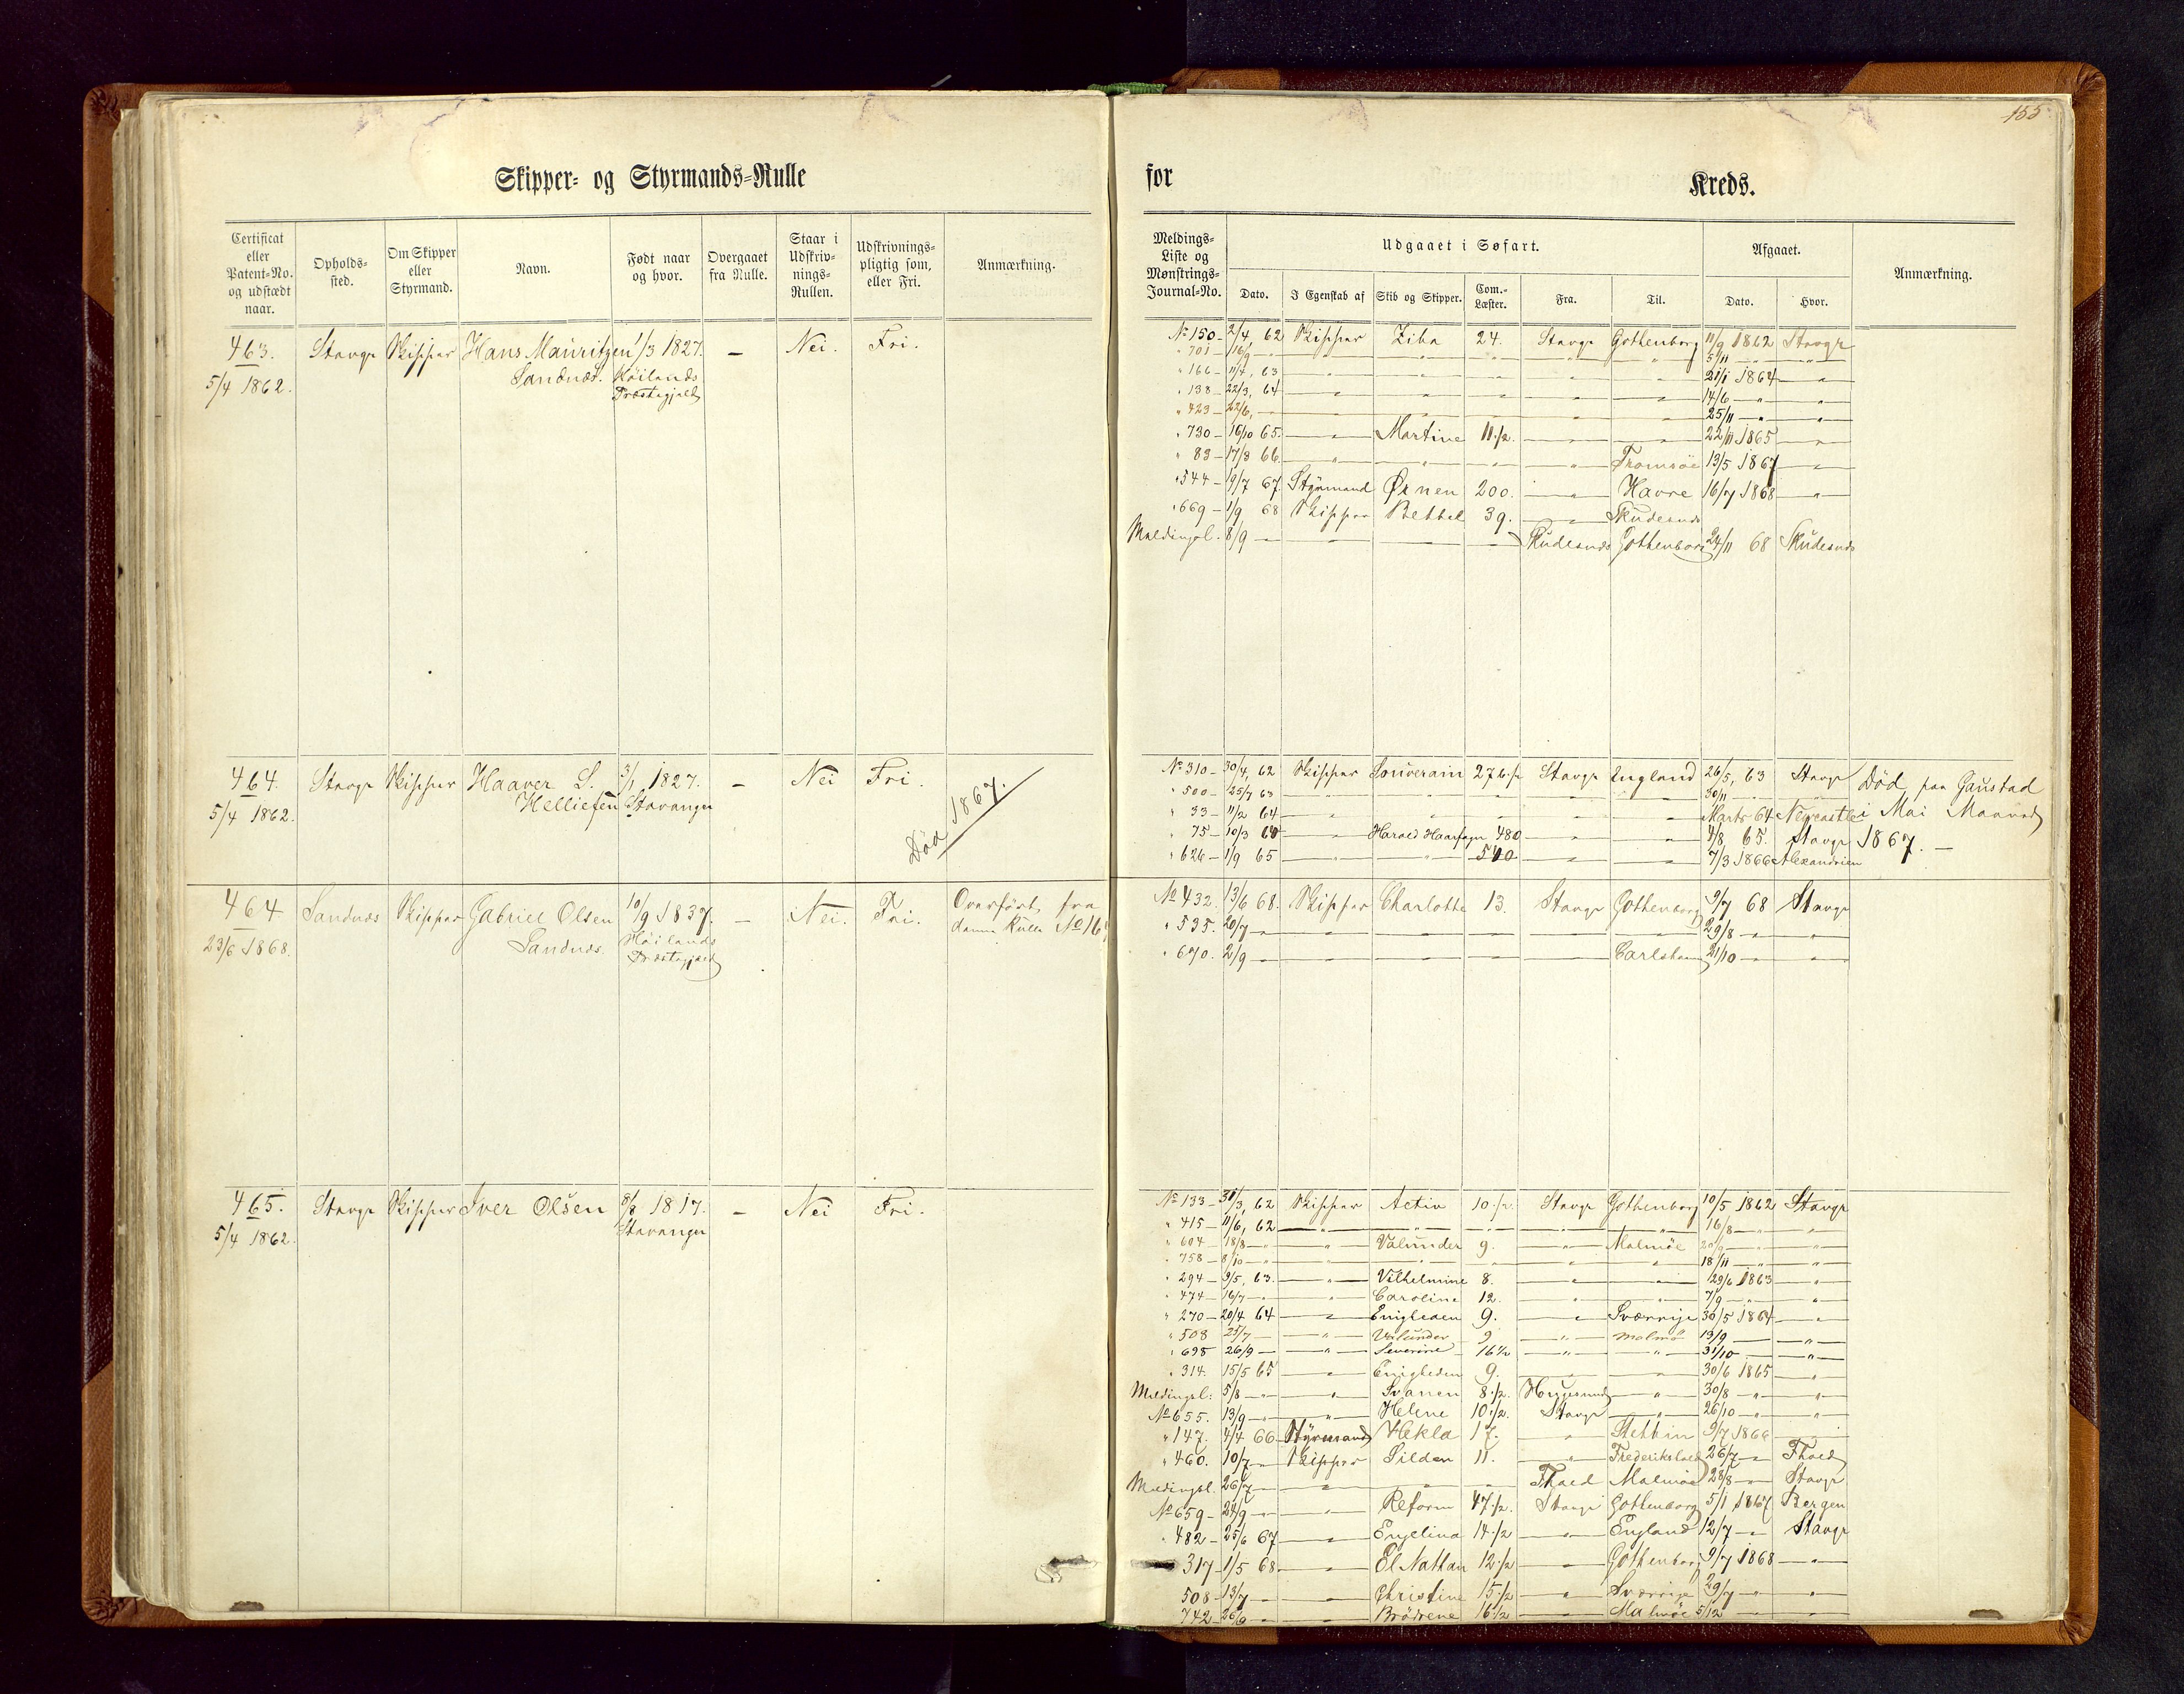 155
Skipper- og Styrmands-Rulle
for
Kreds.
Certificat eller Patent-No. og udstædt naar.
Opholds-sted.
Om Skipper eller Styrmand.
Navn.
Født naar og hvor.
Overgaaet fra Rulle.
Staar i Udskriv-nings-Rullen.
Udskrivnings-pligtig som, eller Fri.
Anmærkning.
Meldings-Liste og Mønstrings-Journal-No.
Udgaaet i Søfart.
Afgaaet.
Anmærkning.
Dato.
I Egenskab af
Skib og Skipper.
Com.-Læster.
Fra.
Til.
Dato.
Hvor.
463. Stavgr Skipper Hans Mauritzen 1/3 1827. — Nei. Fri.
5/4 1862. Sandnæs. Høilands
Præstegjeld
No 150 - 2/4, 62 Skipper Ziba 24. Stavgr Gothenborg 11/9 1862 Stavgr
" 701 - 16/9 - " " " " " 5/11 - "
" 166 - 11/4, 63 " " " " " 21/1 1864 "
" 138 - 22/3, 64 " " " " " 14/6 - " "
" 423 - 22/6, - " " 25/11 - " "
" 730 - 16/10 65. " Martine 11 1/2. " " 22/11 1865 "
" 83 - 17/3 66. " " " " Tromsöe 13/5 1867 "
" 544 - 9/7 67. Styrmand Ørnen 200. " Havre 16/7 1868 "
" 669 - 1/9 68 Skipper Bethel 39. " Skudesnæs
Meldingsl. 8/9 - — — — Skudesnæs Gothenborg 24/11 68 Skudesnæs
464. Stavgr Skipper Haaver S. 3/1 1827. — Nei Fri.
5/4 1862. Helliesen Stavanger
Död 1867.
No 310 - 30/4, 62 Skipper Souverain 276 1/2 Stavgr England 26/5, 63 Stavgr Död paa Gaustad
" 500 - 25/7 63 " " " " " 30/11 " "
" 33 - 11/2 64 " " " " " Marts 64 Newcastle i Mai Maaned
" 75 - 10/3 64 " Harald Haarfagre 480 " " 4/8 65. Stavgr 1867. —
" 626 - 1/9 65 " " 540 " " 7/3 1866 Alexandrien
464 Sandnæs Skipper Gabriel Olsen 10/9 1837. — Nei. Fri. Overført fra
23/6 1868. Sandnæs. Høilands denne Rulle No 16
Præstegjeld
No 432. 13/6 68. Skipper Charlotte 13. Stavgr Gothenborg 9/7 68 Stavgr
" 535. 20/7 — — — — — — 29/8 - " "
" 670. 2/9 — — — — — Carlshamn 21/10 — "
465. Stavgr Skipper Iver Olsen 8/8 1817. — Nei Fri.
5/4 1862. Stavanger
No 133 - 31/3, 62 Skipper Activ 10 1/2 Stavgr Gothenborg 10/5 1862 Stavgr
" 415 - 11/6, 62 " " " " " 16/8 - " "
" 604 - 18/8 - " " Valunder 9. " Malmöe 20/9 - " "
" 758 - 8/10 - " " " " " " 18/11 - " "
" 294 - 9/5, 63. " Vilhelmine 8. " " 29/6 1863 "
" 474 - 16/7 - " " Caroline 12. " " 7/9 - " "
" 270 - 20/4 64 " Enigheden 9. " Sværrige 30/5 1864 "
" 508 25/7 — " Valunder 9 " Malmö 13/9 — "
" 698 26/9 — " Severine 16 1/2 " " 31/10 — "
" 314. 15/5 65 " Enigheden 9. " " 30/6 1865 "
Meldingsl: 5/8 - " " Svanen 8 1/2. Haugesund " 30/8 - " "
No 655. 13/9 - " " Helene 10 1/2. Stavgr " 26/10 - " "
" 147. 4/4 66 Styrmand Hekla 17. " Stettin 9/7 1866 —
" 460. 10/7 - " Skipper Silden 11. " Frederikshald 26/7 - " Fhald
Meldingsl. 26/7 — " " " Fhald Malmöe 28/8 - " Stavgr
No 659 - 24/9 - " — Reform 47 1/2. Stavgr Gothenborg 5/1 1867 Bergen
" 482 - 25/6 67 " Engelina 14 1/2 " England 12/7 - " Stavgr
317 - 1/5 68 " El Nathan 12 1/2 " Gothenborg 9/7 1868 "
508 - 13/7 - " " Christine 15 1/2 " Sværrige 29/9 - " "
742 - 26/9 - " " Brödrene 16 1/2 " Malmöe 5/12 — "